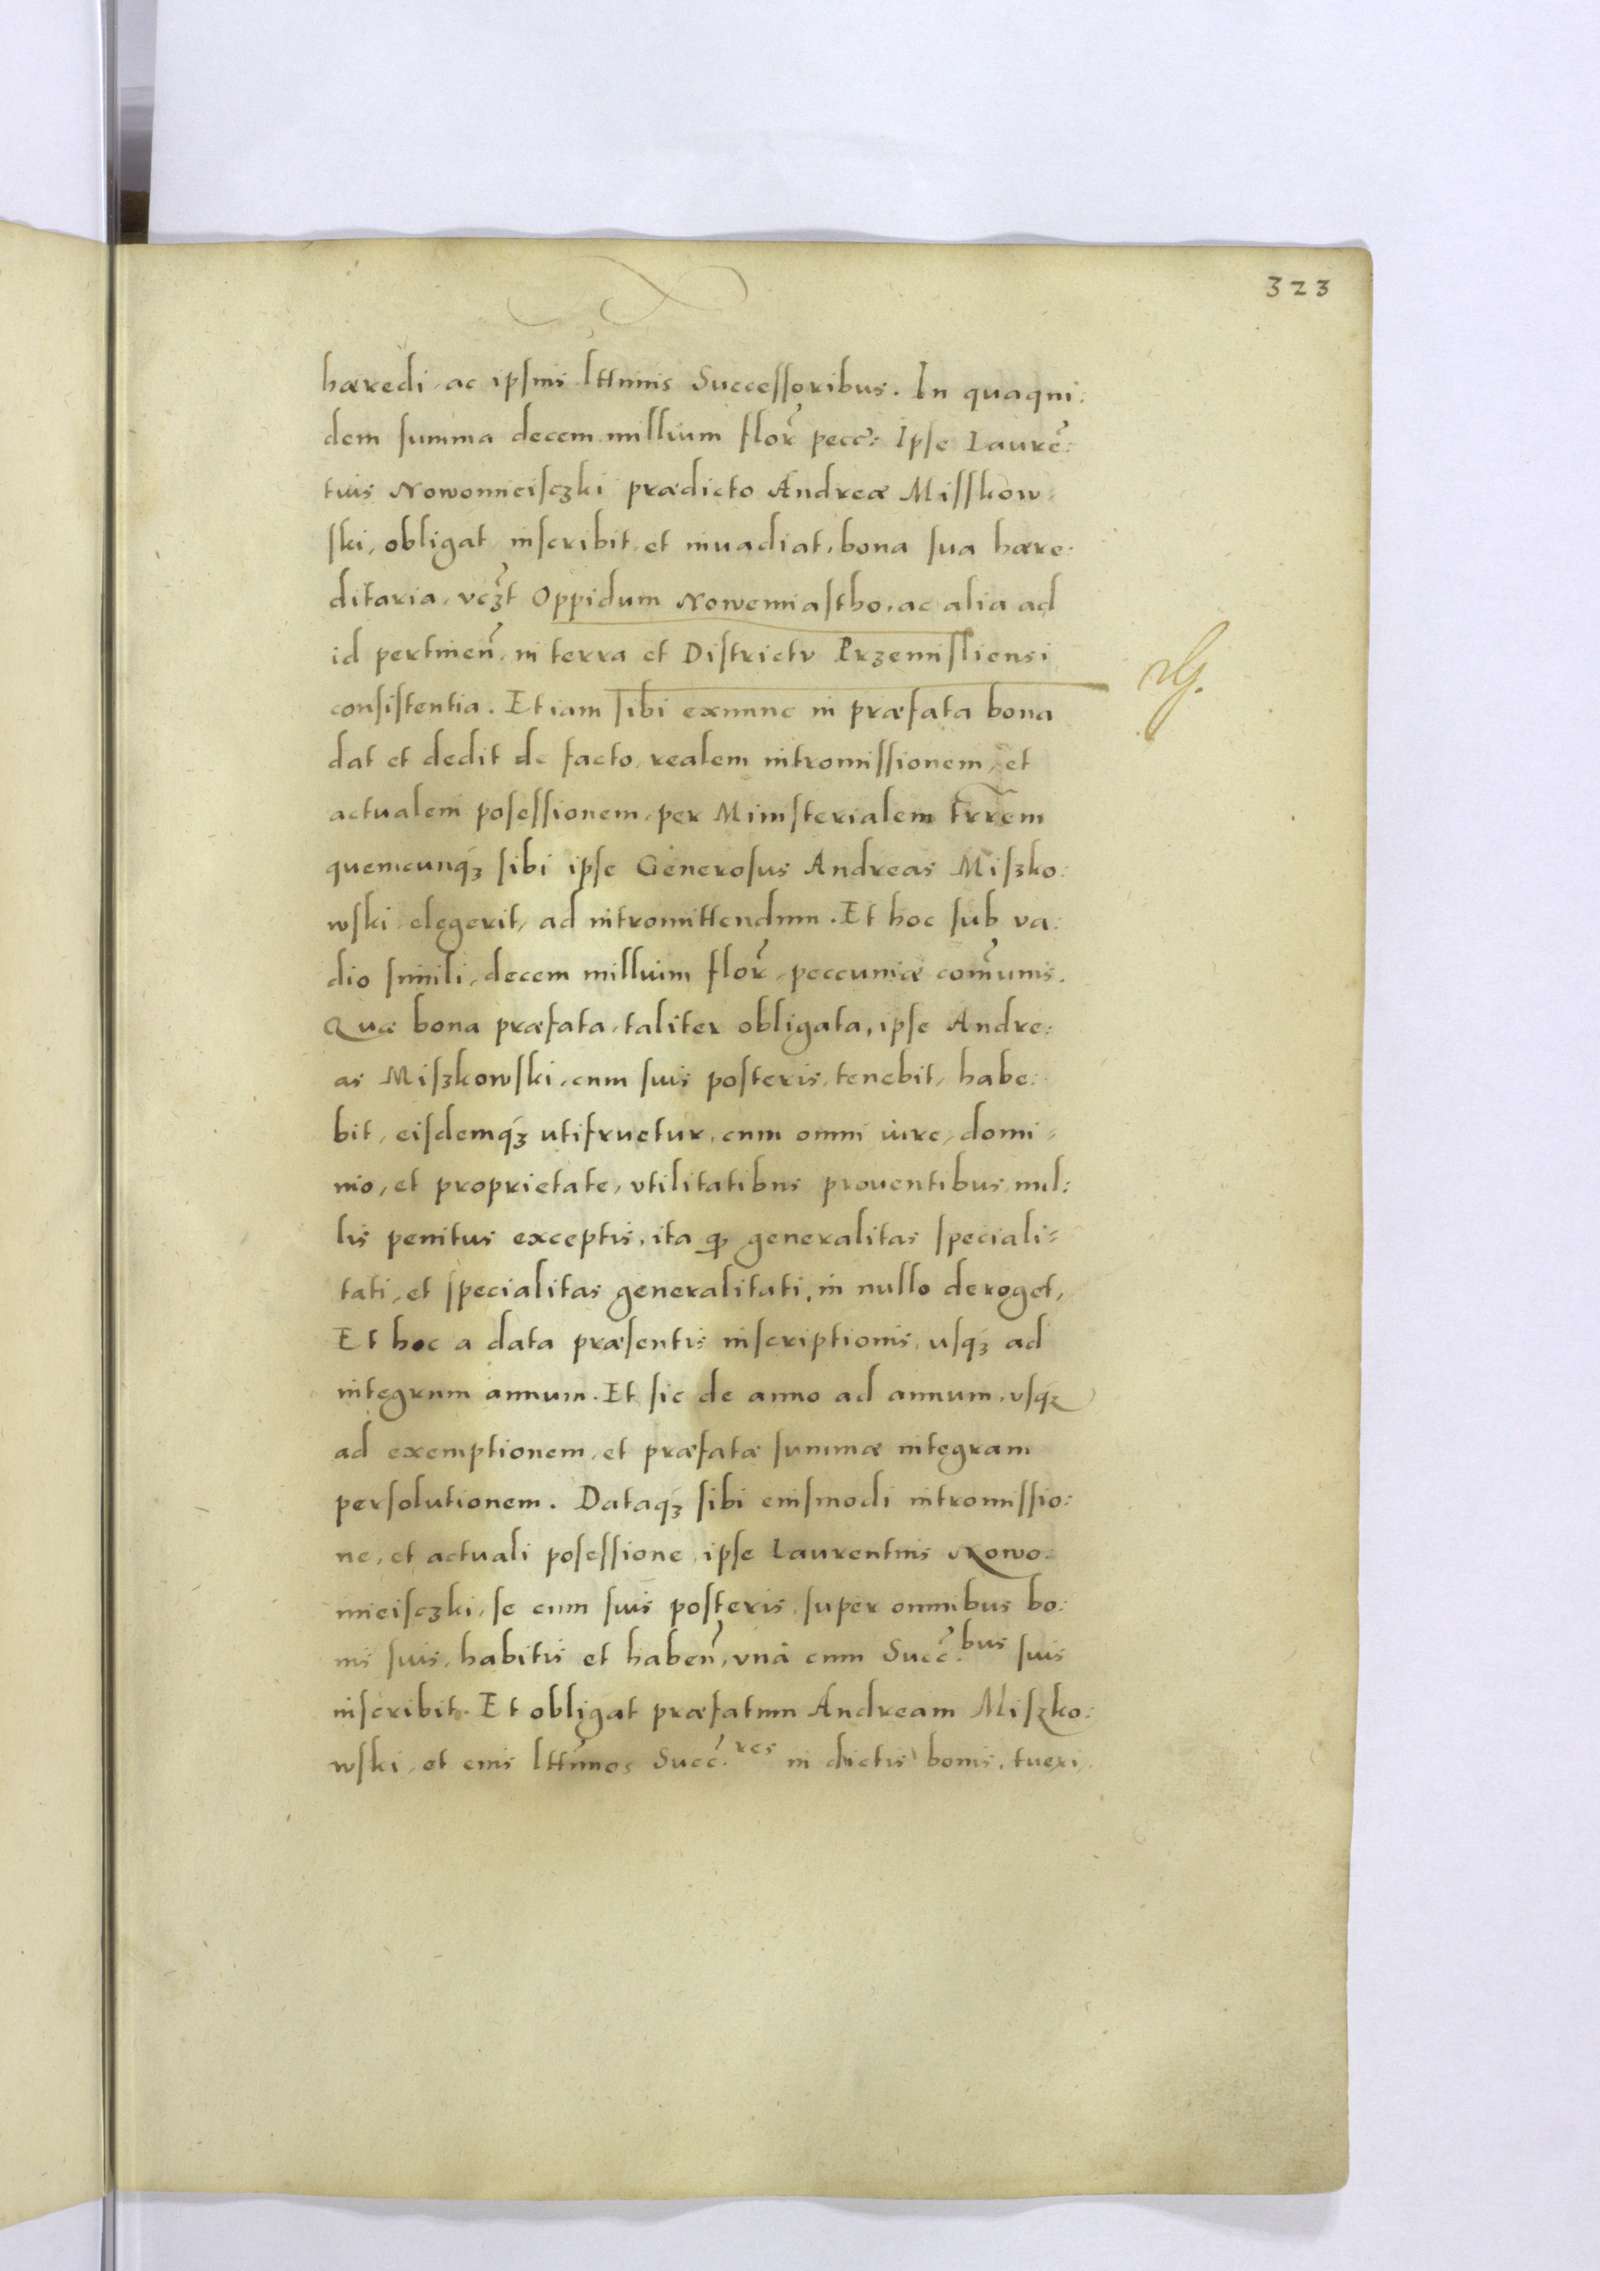 323
hæredi, ac ipsius lttimis Successoribus. In quaqui:
dem summa decem millium flor̃ pecc̃: Ipse Laurẽ:
tius Nowomieisczki prædicto Andreæ Misskow:
ski, obligat inscribit et inuadiat, bona sua hære:
ditaria, vcz̃t Oppidum Nowemiastho, ac alia ad
id pertineñ, in terra et Districtv Przemisliensi
consistentia. Et iam sibi exnunc in præfata bona
dat et dedit de facto, realem intromissionem, et
actualem posessionem, per Ministerialem trr̃em
quemcunqꝫ sibi ipse Generosus Andreas Miszko:
wski elegerit, ad intromittendum. Et hoc sub va:
dio simili, decem millium flor̃, peccuniæ com̃unis.
Quæ bona præfata, taliter obligata, ipse Andre:
as Miszkowski, cum suis posteris, tenebit, habe:
bit, eisdemqꝫ utifruetur, cum omni iure, domi:
nio, et proprietate, vtilitatibus proventibus, nul:
lis penitus exceptis, ita ꝙ generalitas speciali:
tati, et specialitas generalitati, in nullo deroget,
Et hoc a data præsentis inscriptionis, usqꝫ ad
integrum annum. Et sic de anno ad annum, vsqꝫ
ad exemptionem, et præfatæ summæ integram
persolutionem. Dataqꝫ sibi eiusmodi intromissio:
ne, et actuali posessione, ipse Laurentius Nowo:
mieisczki, se cum suis posteris, super omnibus bo:
nis suis, habitis et habeñ, vnâ cum Succ̃.bus suis
inscribit. Et obligat præfatum Andream Miszko:
wski, et eius lttimos Succ̃.res in dictis bonis, tueri,